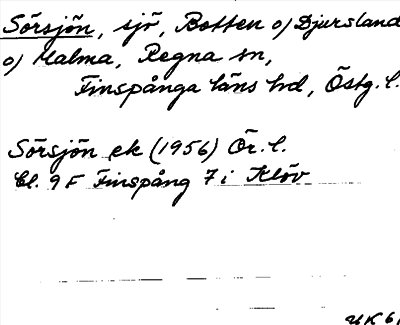 Sörsjön, sjö, Botten o) Djursland
o) Malma, Regna sn,
Finspånga läns hd, Östg. l.
Sörsjön ek (1956) Ör. l.
Bl. 9 F Finspång 7 i Klöv
UK 61